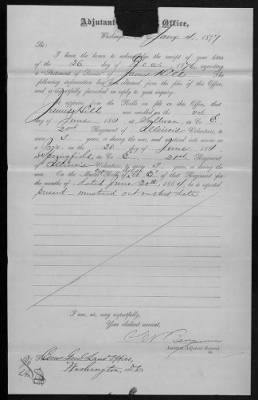 Adjutant Office,
Washington, Jany 4, 1877
Sir:
I have the honor to acknowledge the receipt of your letter
of the 26 day of Dec 1876, requesting
a Statement of Service of James Hill
following information has been obtained from the files of this Office, and
is respectfully furnished in reply to your inquiry.
It appears from the Rolls on file in this Office, that
James Hill was enrolled on the
day of June 1861 at Sullivan in Co. E,
21st Regiment of Illinois Volunteers, to
serve 3 years, or during the war, and mustered into service as
a on the 20 day of June 1861, at
Springfield, in Co. E 21st Regiment
of Illinois Volunteers, to serve 3 years, or during the war.
On the Muster Roll of Co. E of that Regiment for
the months of dated June 20th 1864, he is reported
present mustered out on that date
I am, sir, very respectfully,
Your obedient servant,
Assistant Adjutant General
Com Genl Land Office,
Washington, D.C.